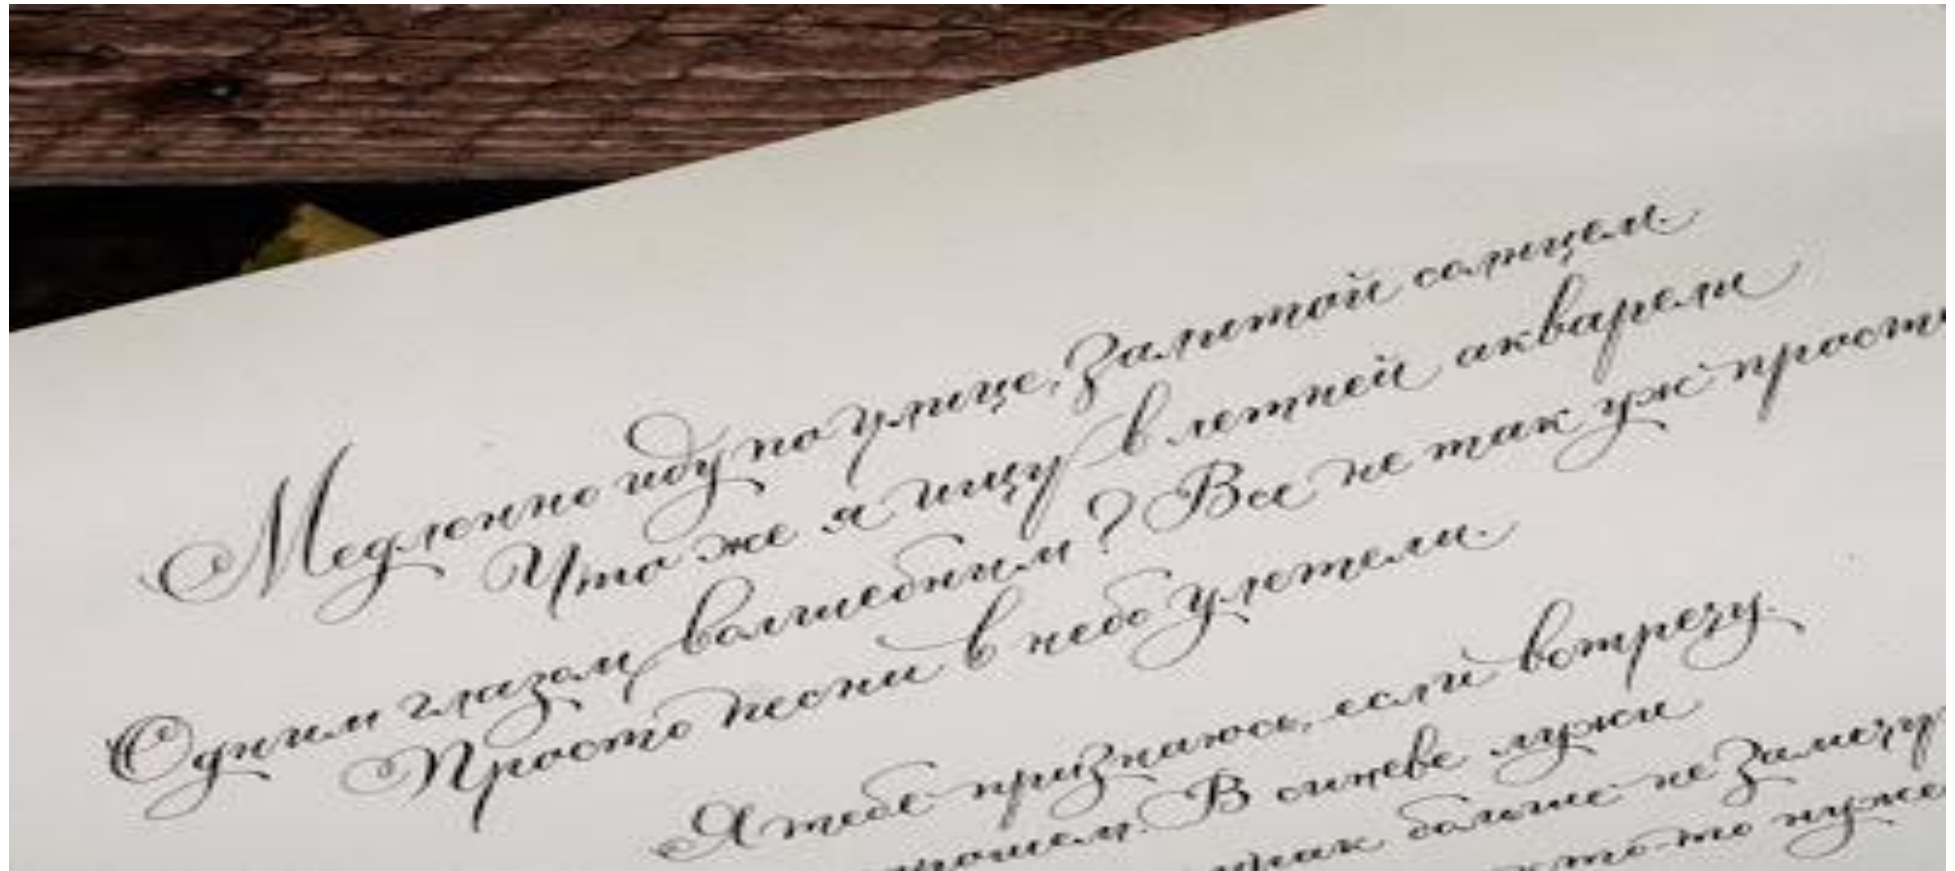 Медленно иду по улице, залитой солнцем
Что же я ищу в летней акварели
Одним глазом волшебным? Все не так уж прост
Просто песни в небо улетели.
Я тебе признаюсь, если встречу.
В синеве лужи
больше не замечу
кто-то нуже